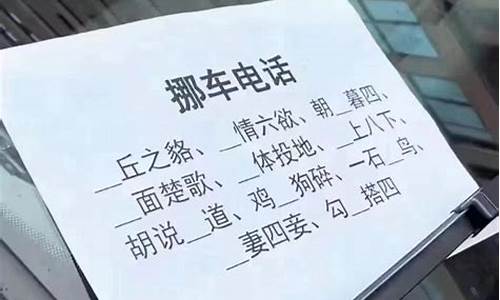 挪车电话
__丘之貉、__情六欲、朝__暮四、
__面楚歌、__体投地、__上八下、
胡说__道、鸡__狗碎、一石__鸟、
__妻四妾、勾__搭四